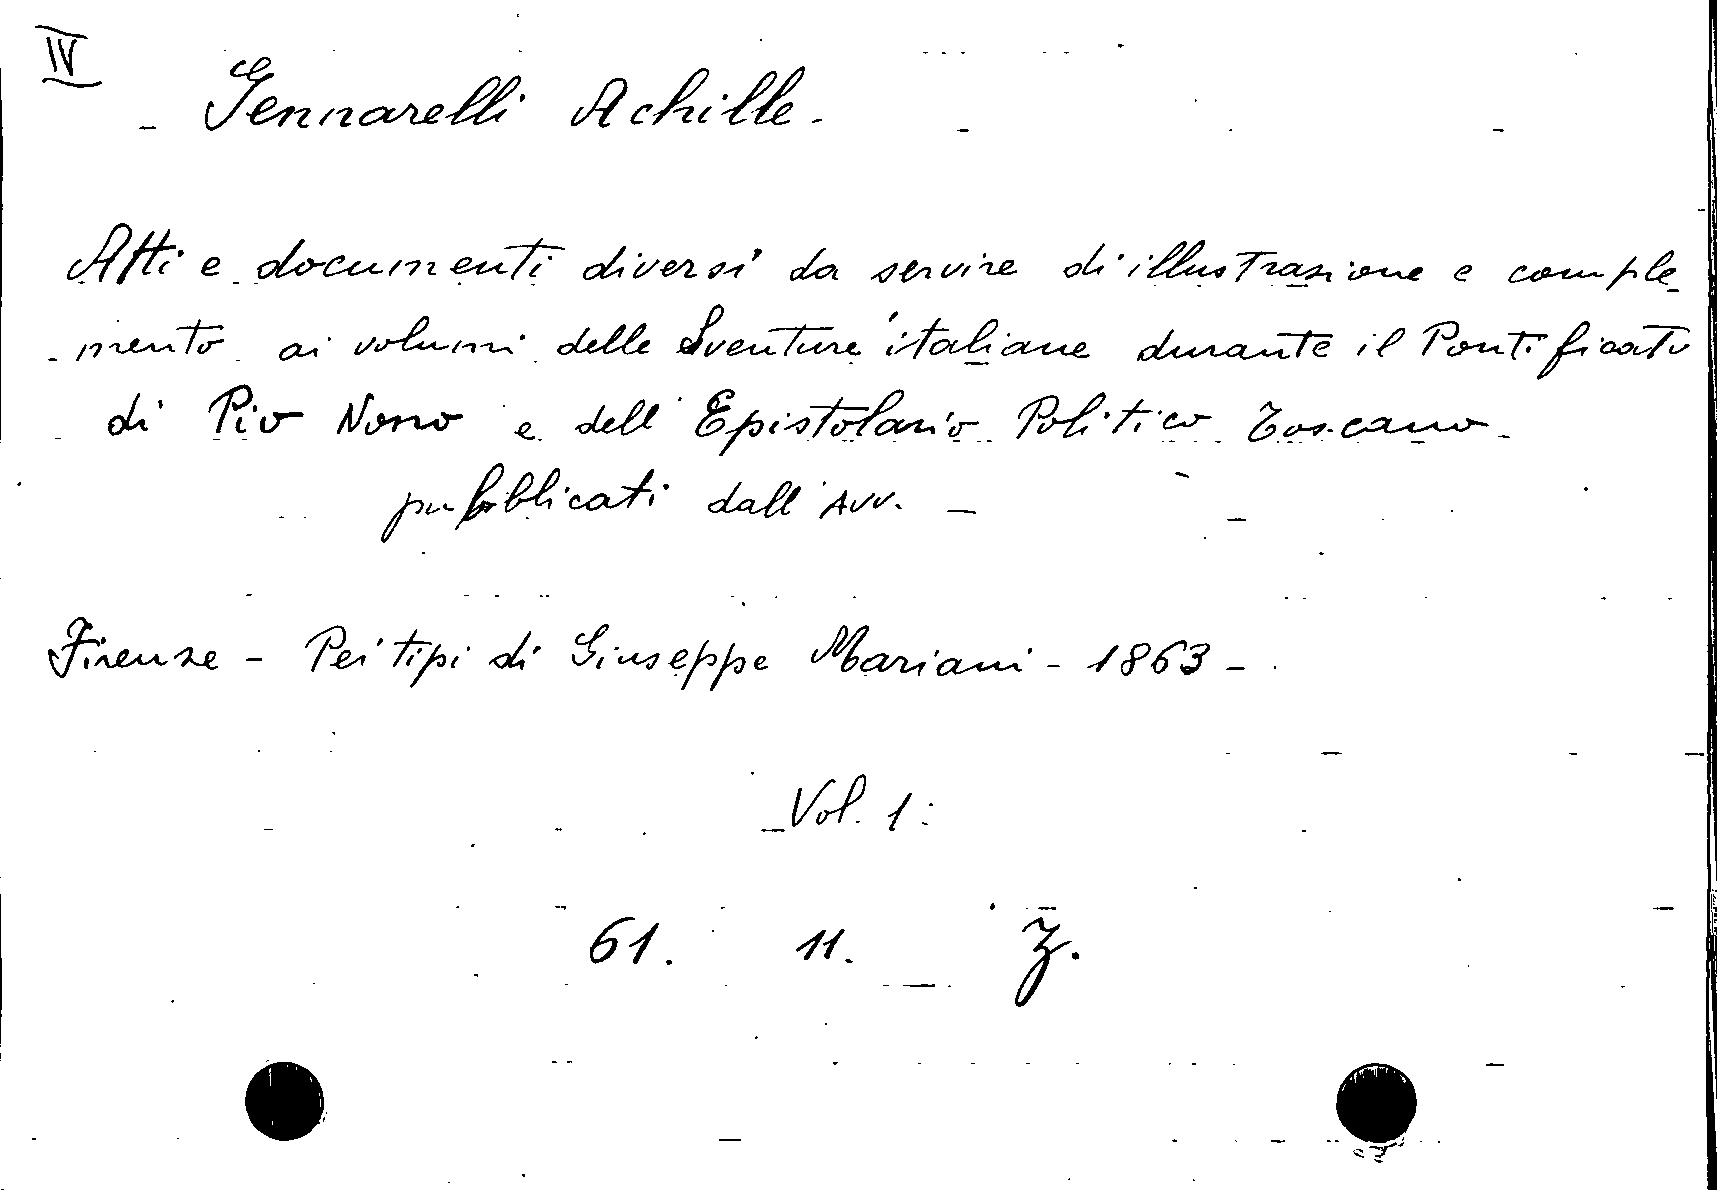 IV
Gennarelli Achille.
Atti e documenti diversi da servire di illustrazione e comple-
mento ai volumi delle Sventure italiane durante il Pontificato
di Pio Nono e dell'Epistolario Politico Toscano
pubblicati dall'Avv. -
Firenze - Pei tipi di Giuseppe Mariani - 1863 -
Vol. 1:
61. 11. Z.